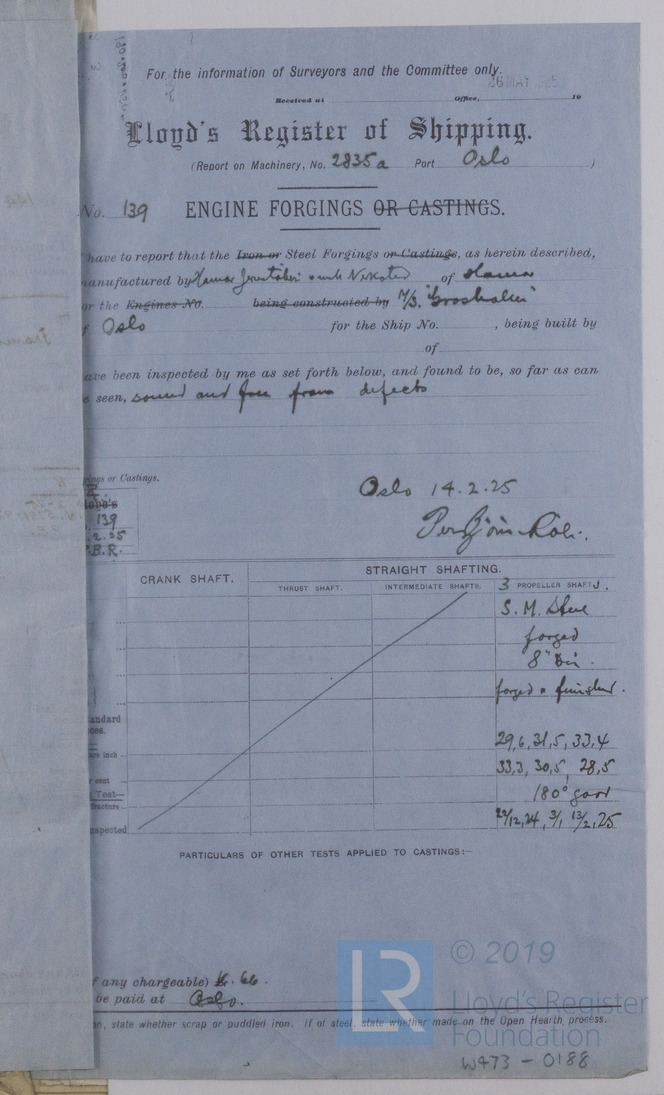 For the information of Surveyors and the Committee only.
26 MAY
Received at Office, 19
Lloyd's Register of Shipping.
(Report on Machinery, No. 2835a Port Oslo )
No. 139 ENGINE FORGINGS OR CASTINGS.
have to report that the Iron or Steel Forgings or Castings, as herein described,
anufactured by of Hamar
or the Engines No. being constructed by M/S.
Oslo for the Ship No. , being built by
of
ave been inspected by me as set forth below, and found to be, so far as can
seen, sound and free from defects
ings or Castings.
Oslo 14.2.25
139
.2.25
.B.R.
CRANK SHAFT.
STRAIGHT SHAFTING.
THRUST SHAFT.
INTERMEDIATE SHAFTS.
3 PROPELLER SHAFTS.
S. M. Steel
forged
8"
forged & finished.
andard
29,6, 31,5, 33,4
are inch
33,3, 30,5, 28,5
r cent
Test—
180° good
fracture
22/12, 24, 3/1, 13/2, 25
nspected
PARTICULARS OF OTHER TESTS APPLIED TO CASTINGS:—
f any chargeable) 66.
be paid at Oslo.
n, state whether scrap or puddled iron. If of steel, state whether made on the Open Hearth process.
LR
© 2019
Lloyd's Register
Foundation
W473 - 0188